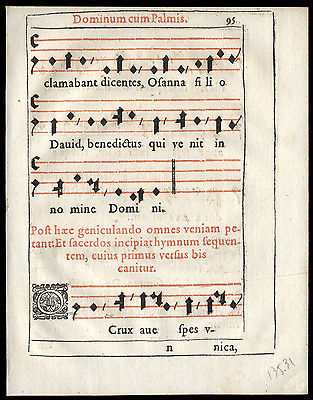 Dominum cum Palmis. 95
clamabant dicentes, Osanna fi li o
Dauid, benedictus qui ve nit in
no mine Domi ni.
Post hæc geniculando omnes veniam pe-
tant. Et sacerdos incipiat hymnum sequen-
tem, cuius primus versus bis
canitur.
Crux aue spes v-
n nica,